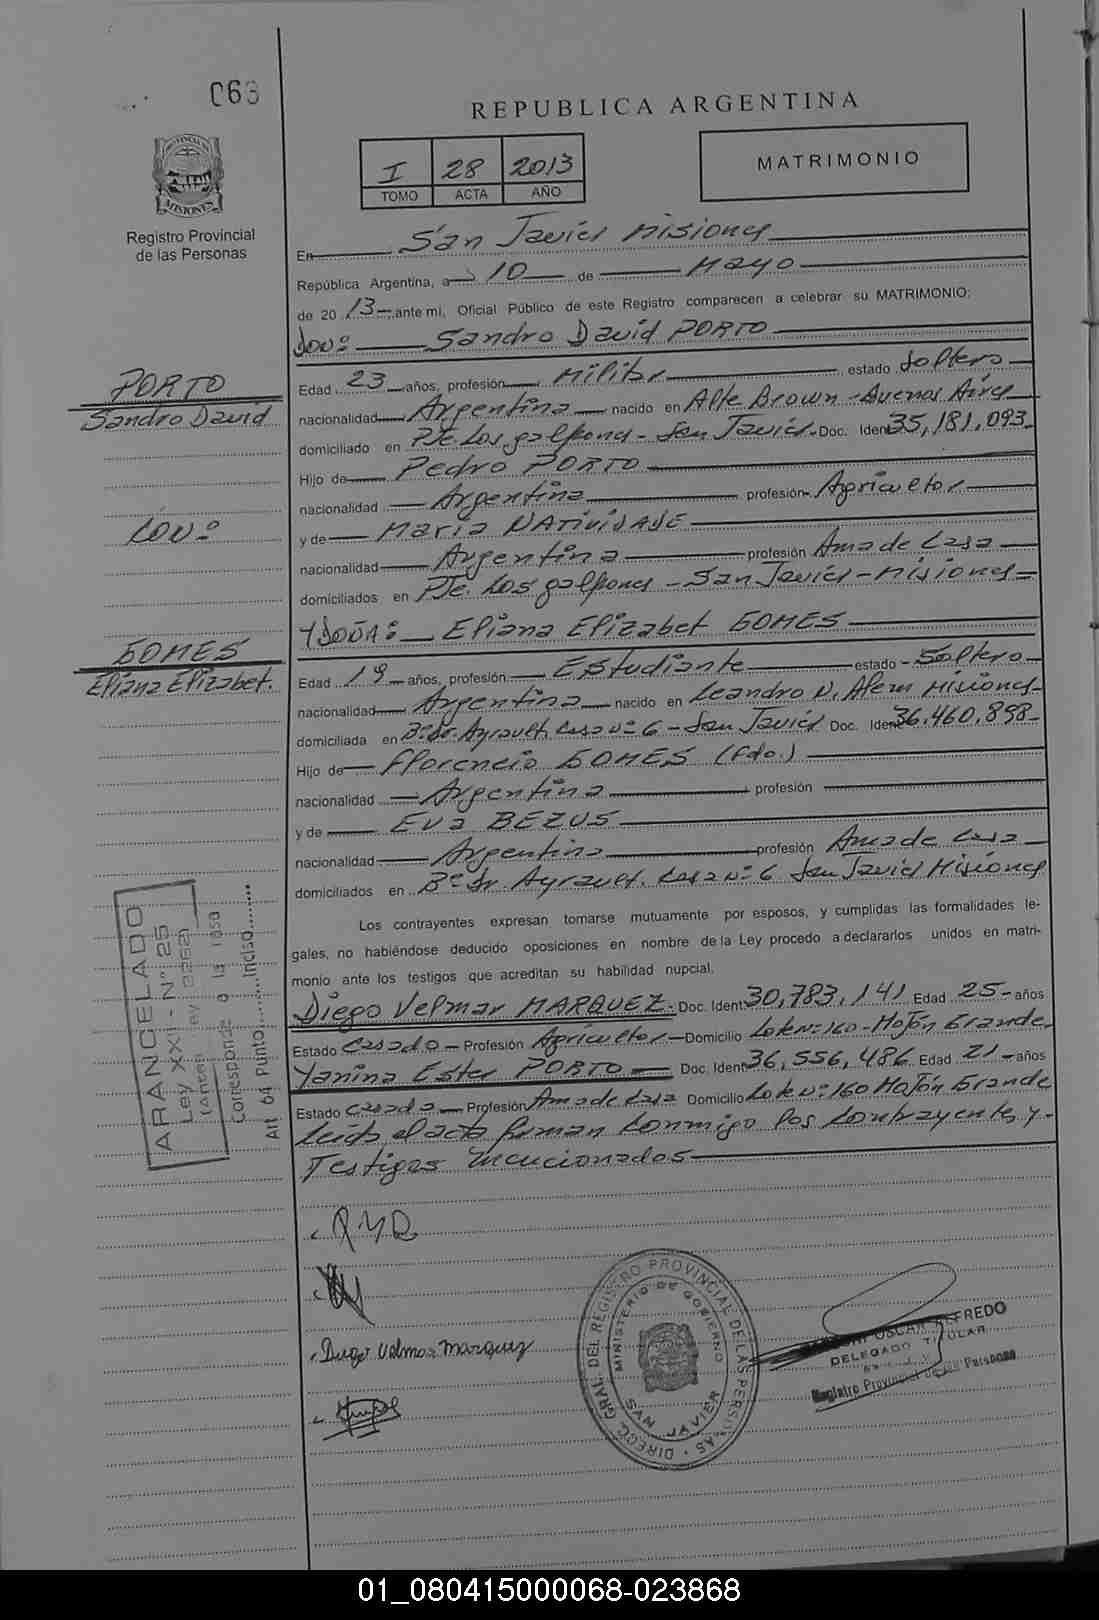 063
REPUBLICA ARGENTINA
I 28 2013
TOMO ACTA AÑO
MATRIMONIO
MISIONES
Registro Provincial
de las Personas
En San Javier Misiones
República Argentina, a 10 de Mayo
de 2013 ante mi, Oficial Público de este Registro comparecen a celebrar su MATRIMONIO:
DON: Sandro David PORTO
PORTO
Sandro David
CON:
GOMES
Eliana Elizabet.
Edad 23 años, profesión Militar estado Soltero
nacionalidad Argentina nacido en Alte Brown - Buenos Aires
domiciliado en Pje. Los galpones - San Javier. Doc. Ident 35,181,093
Hijo de Pedro PORTO
nacionalidad Argentina profesión Agricultor
y de Maria NATIVIDADE
nacionalidad Argentina profesión Ama de Casa
domiciliados en Pje. Los galpones - San Javier - Misiones
Y DOÑA: Eliana Elizabet GOMES
Edad 19 años, profesión Estudiante estado Soltero
nacionalidad Argentina nacido en Leandro N. Alem Misiones
domiciliada en B: Dr. Ayrault. Casa Nº 6 - San Javier Doc. Ident 36,460,898
Hijo de Florencio GOMES (Fdo.)
nacionalidad Argentina profesión
y de Eva BEZUS
nacionalidad Argentina profesión Ama de Casa
domiciliados en Bº Dr Ayrault. Casa Nº 6 San Javier Misiones
Los contrayentes expresan tomarse mutuamente por esposos, y cumplidas las formalidades le-
gales, no habiéndose deducido oposiciones en nombre de la Ley procedo a declararlos unidos en matri-
monio ante los testigos que acreditan su habilidad nupcial.
Diego Velmar MARQUEZ. Doc. Ident 30,783,141 Edad 25 años
Estado Casado Profesión Agricultor Domicilio Lote Nº 160 - Mojón Grande
Yanina Ester PORTO Doc. Ident 36,556,486 Edad 21 años
Estado Casada Profesión Ama de Casa Domicilio Lote Nº 160 Mojón Grande
Leida el acta firman conmigo los contrayentes y
Testigos mencionados
ARANCELADO
Ley XXI - N° 25
(Antes Ley 2262)
Corresponde a la Tasa
Art 64 Punto Inciso
Diego Velmar Marquez
DIRECC. GRAL. DEL REGISTRO PROVINCIAL DE LAS PERSONAS
MINISTERIO DE GOBIERNO
SAN JAVIER
OSCAR ALFREDO
DELEGADO TITULAR
Registro Provincial de las Personas
01_080415000068-023868